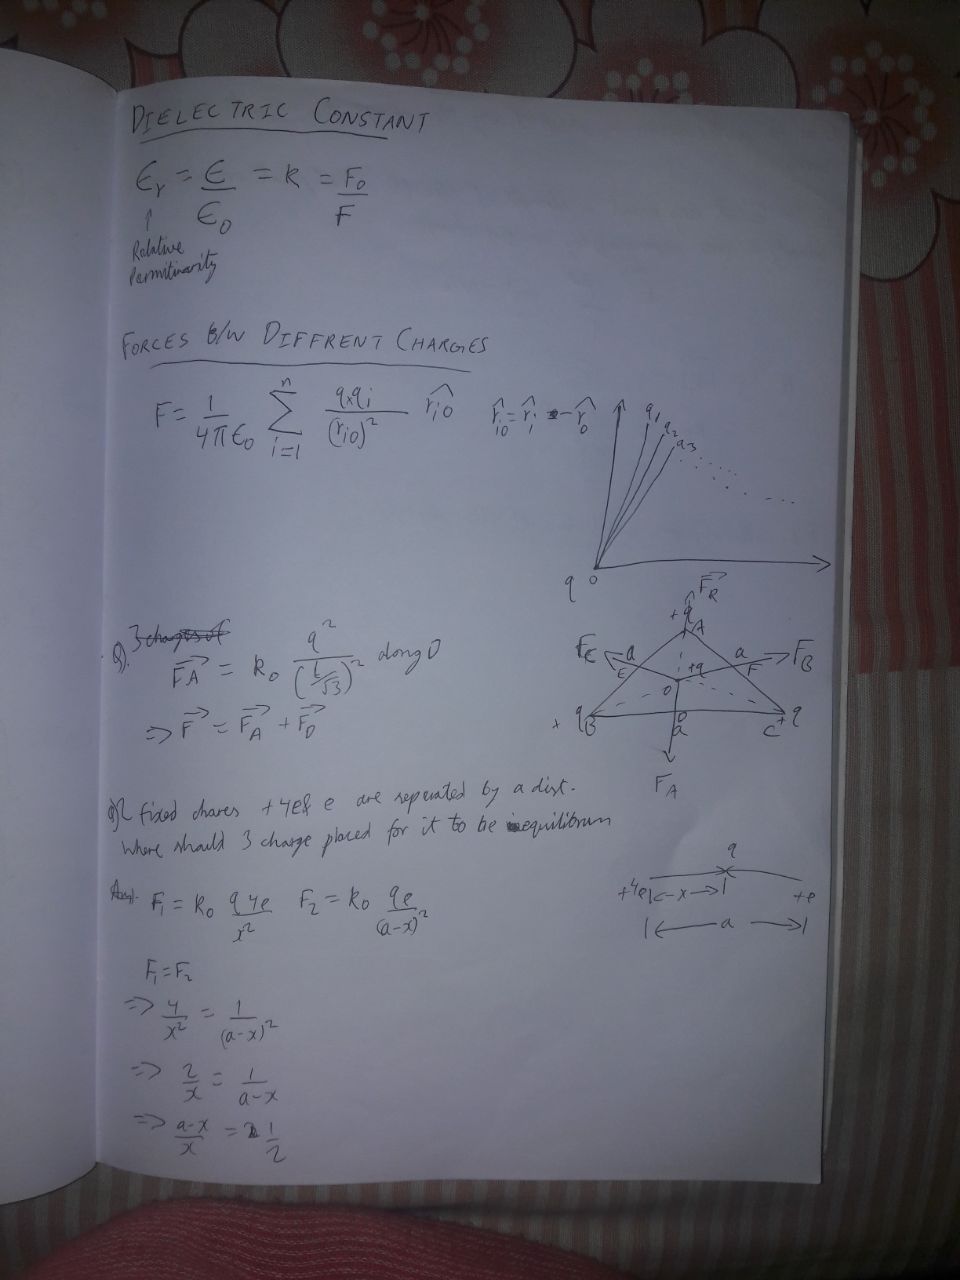 DIELECTRIC CONSTANT
Єr = Є/Є0 = K = F0/F
↑
Relative
Permitinarity
FORCES B/W DIFFRENT CHARGES
F = 1/4πЄ0 Σ i=1 n q×qi/(ri0)² r̂i0 r̂i0 = r̂i - r̂0
q1
q2
q3
q 0
Q). 3 charges of
F⃗A = K0 q²/(L/√3)² along O
=> F⃗ = F⃗A + F⃗D
F⃗R
+q A
F⃗C a a F⃗B
E +q F
O
+ qB D C+ q
a
FA
Q) 2 fixed chares +4e & e are seperated by a dist.
Where should 3 charge placed for it to be in equilibrum
Ans). F1 = K0 q4e/x² F2 = K0 qe/(a-x)²
q
+4e |<-x->| +e
|<- a ->|
F1=F2
=> 4/x² = 1/(a-x)²
=> 2/x = 1/a-x
=> a-x/x = 1/2